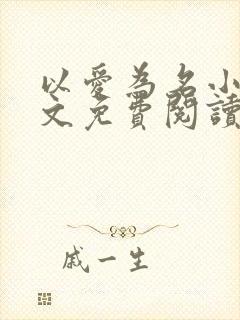 以愛為名小
文免費閱讀
戚一生